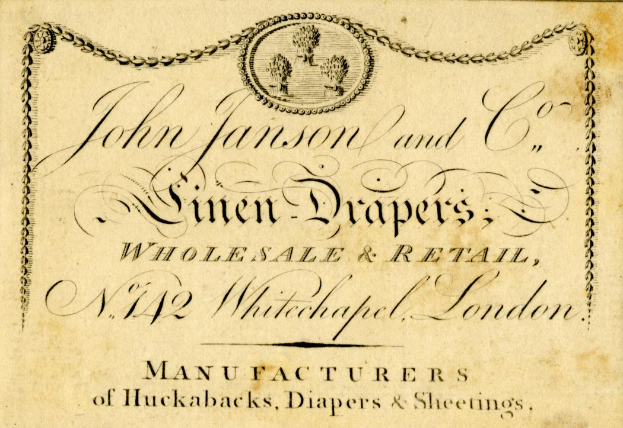 John Janson and Co.,
Linen-Drapers;
WHOLESALE & RETAIL,
No. 142 Whitechapel, London.
MANUFACTURERS
of Huckabacks, Diapers & Sheetings.